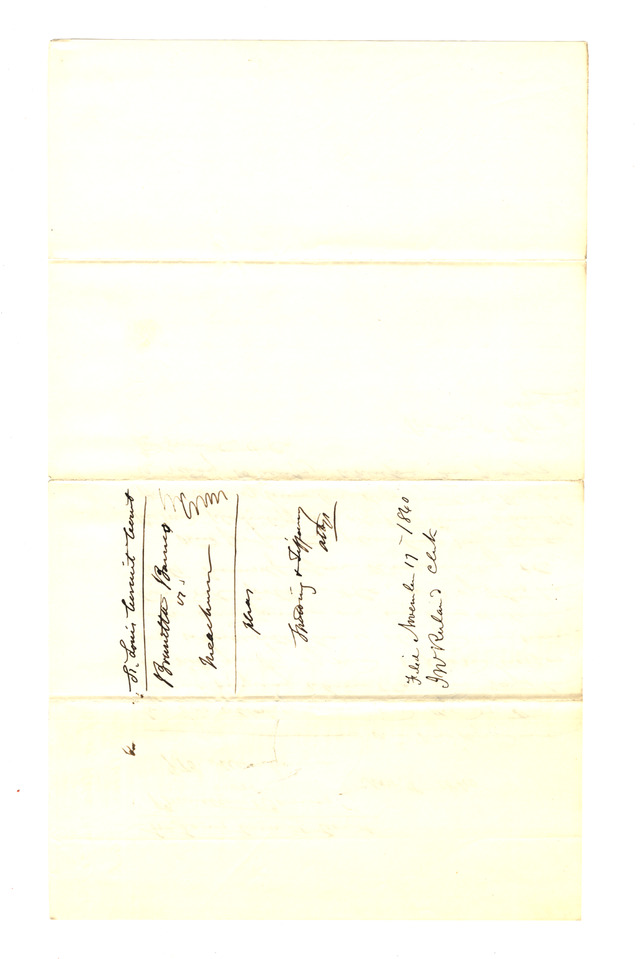 St. Louis Circuit Court
Brunetta Barnes
vs.
Meachum
pleas
& Tiffany
attys
Filed November 17 - 1840
J W Ruland Clerk